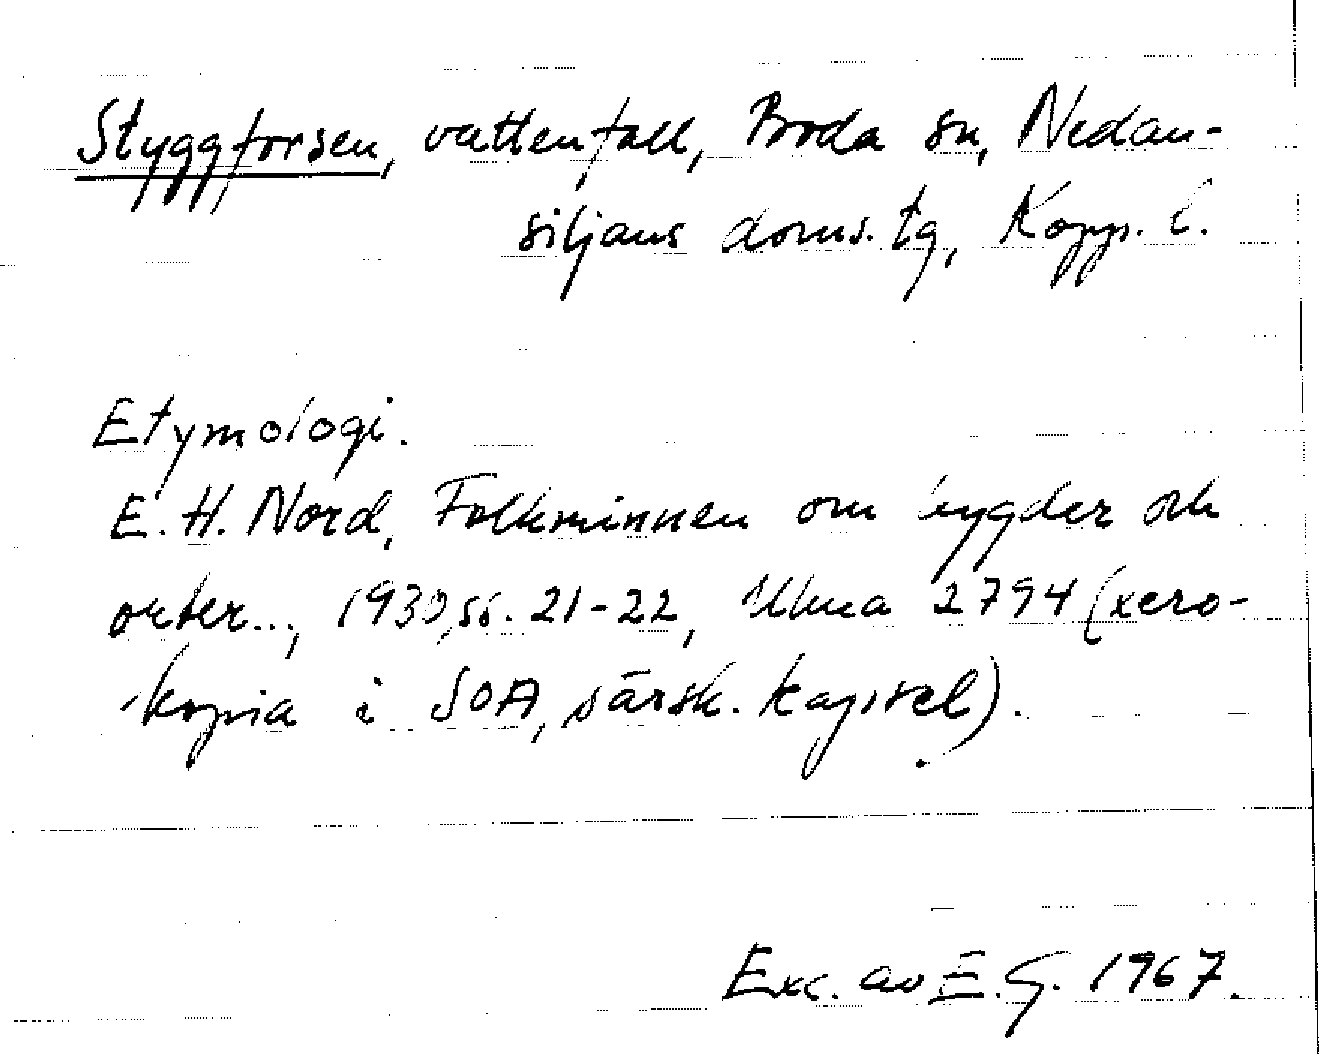 Styggforsen, vattenfall, Boda sn, Nedan-
siljans doms.tg, Kopp. l.
Etymologi.
E. H. Nord, Folkminnen om bygder och
orter..., 1930, ss. 21-22, Ulma 2794 (xero-
kopia i SOA, särsk. kapsel).
Exc. av E. G. 1967.